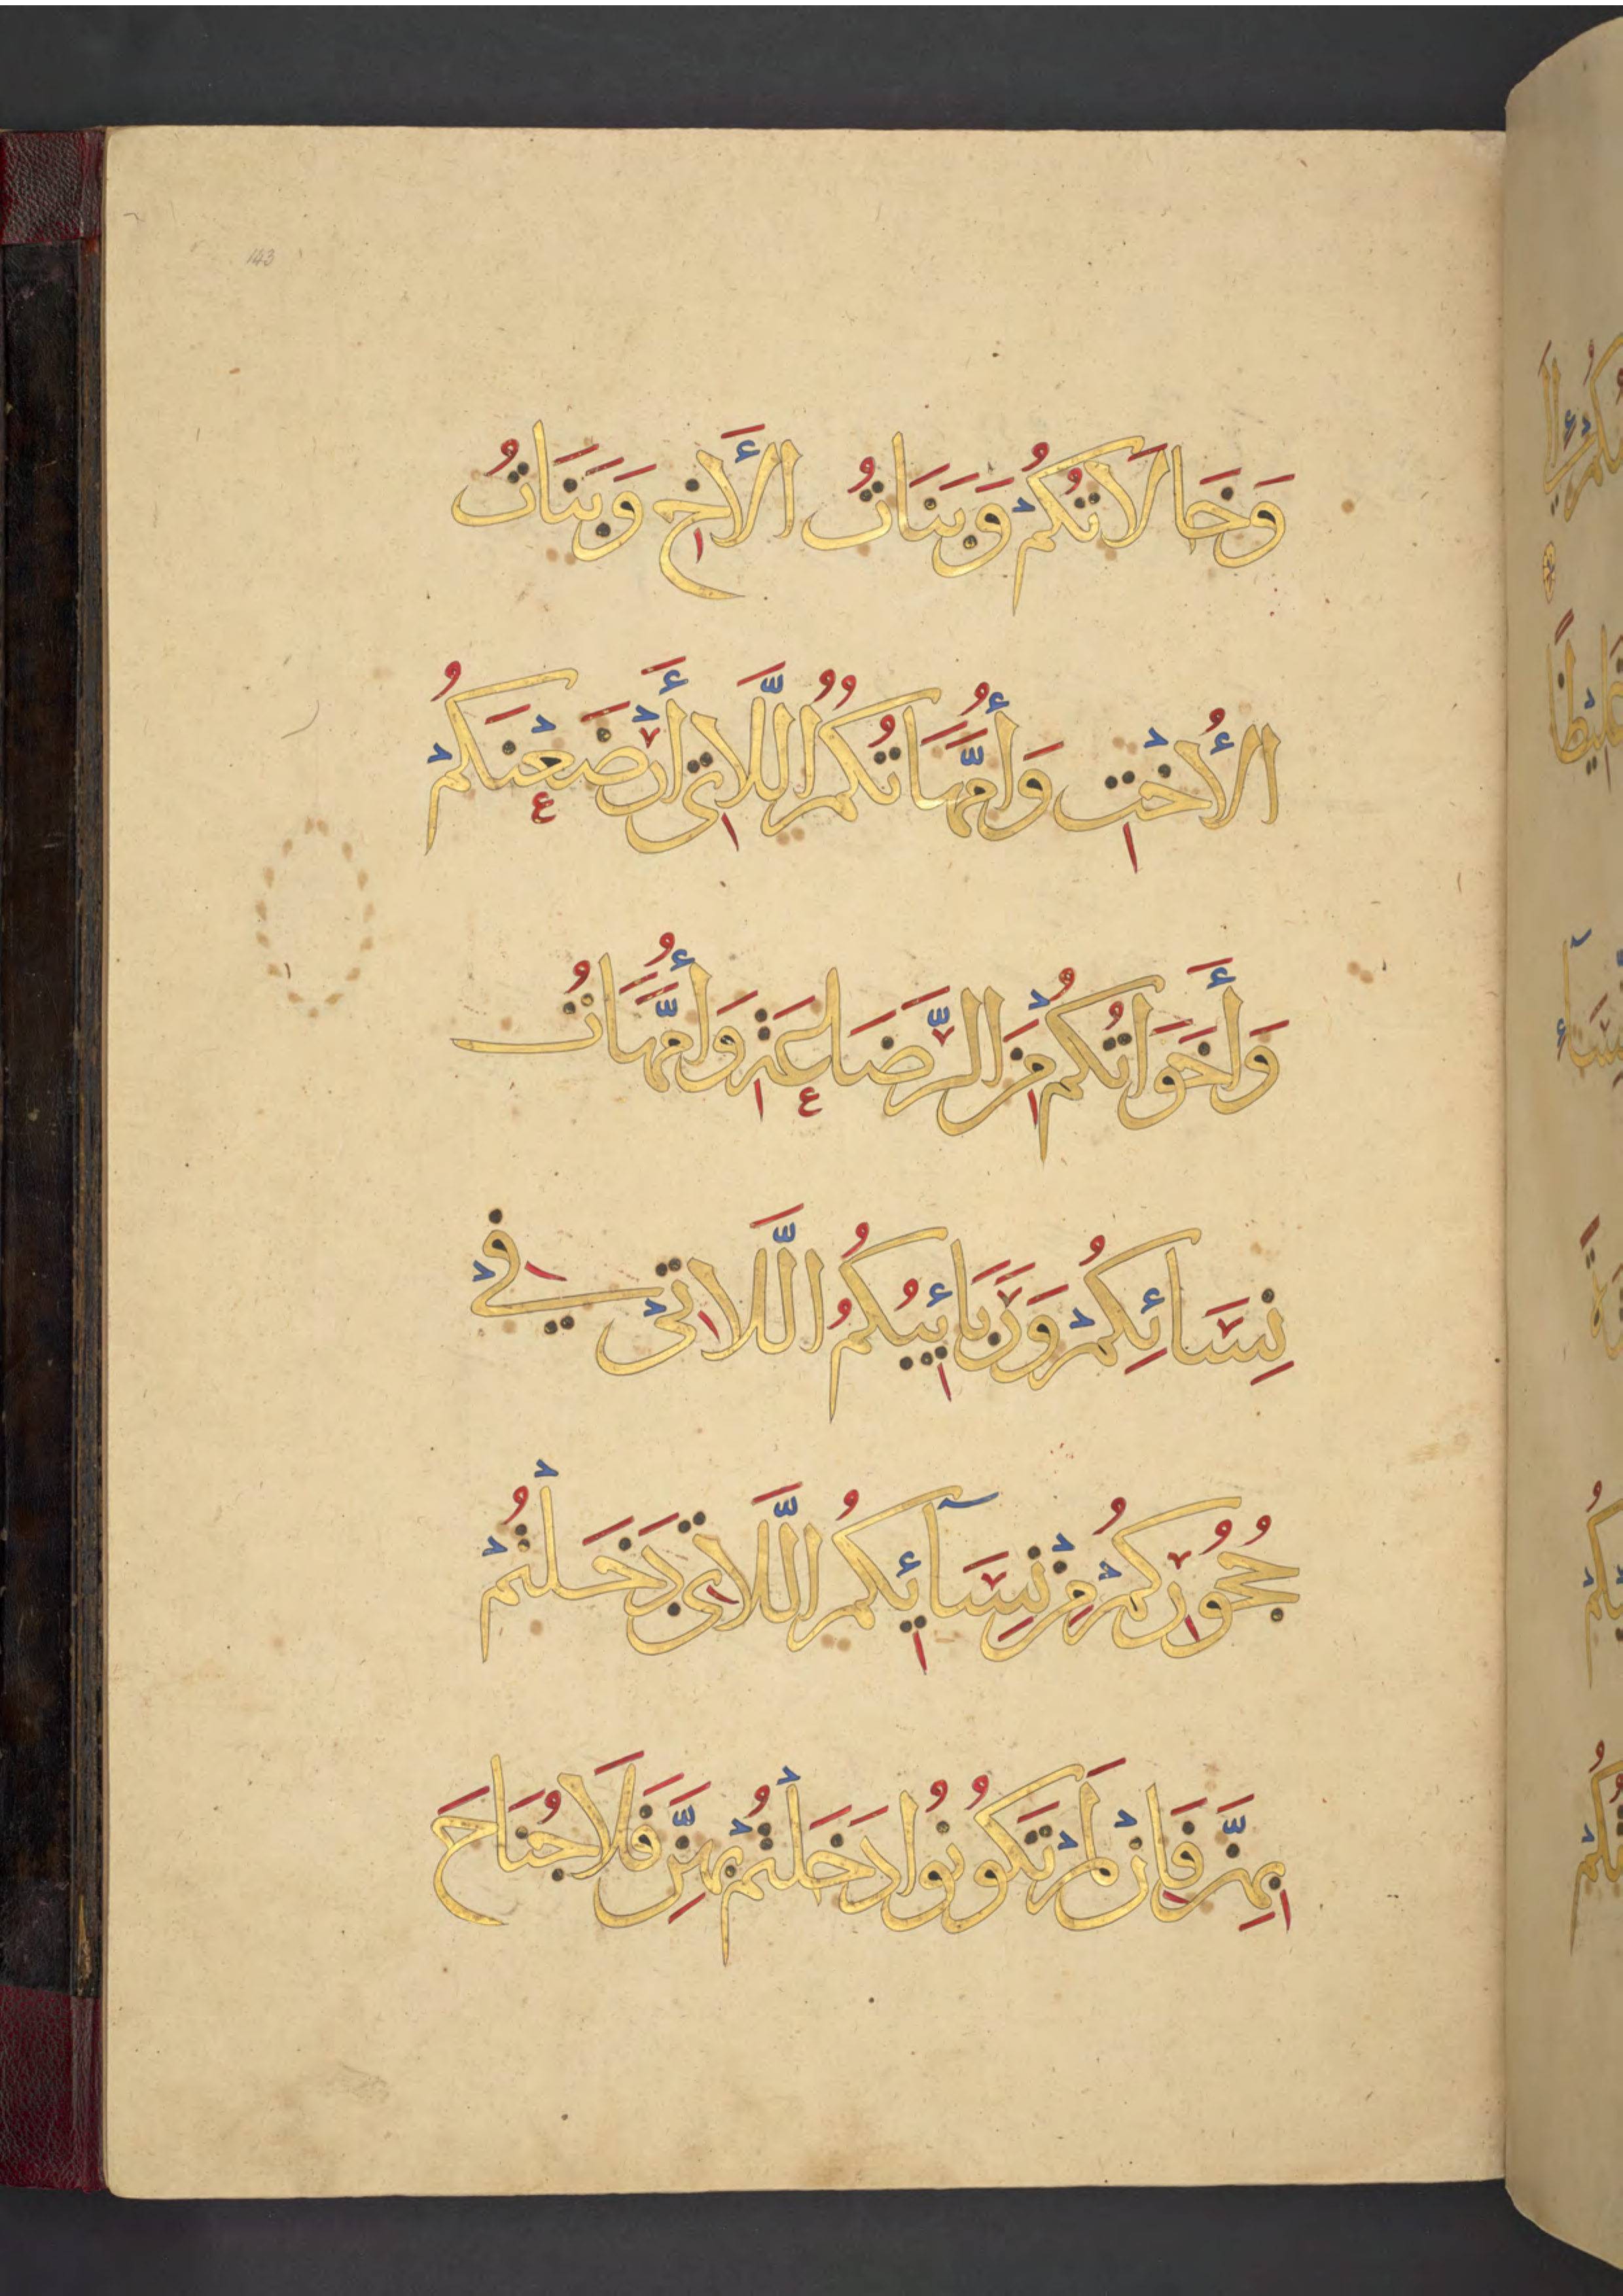 143
وَخَالَاتُكُمْ وَبَنَاتُ الْأَخِ وَبَنَاتُ
الْأُخْتِ وَأُمَّهَاتُكُمُ اللَّاتِي أَرْضَعْنَكُمْ
وَأَخَوَاتُكُمْ مِنَ الرَّضَاعَةِ وَأُمَّهَاتُ
نِسَائِكُمْ وَرَبَائِبُكُمُ اللَّاتِي فِي
حُجُورِكُمْ مِنْ نِسَآئِكُمُ اللَّاتِي دَخَلْتُمْ
بِهِنَّ فَإِنْ لَمْ تَكُونُوا دَخَلْتُمْ بِهِنَّ فَلَا جُنَاحَ